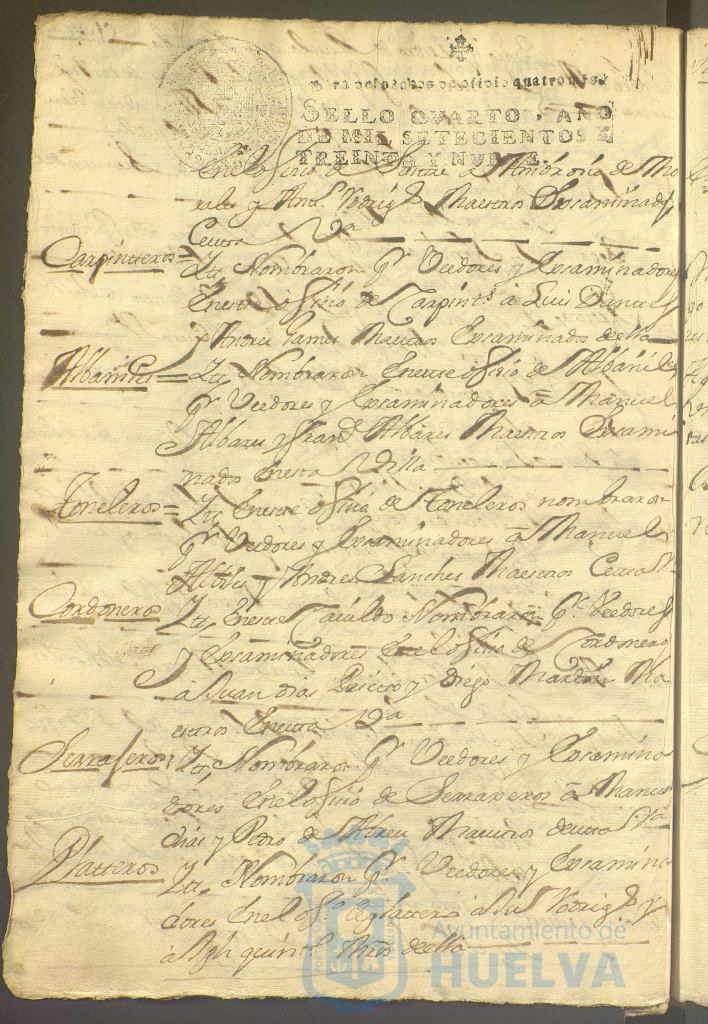 Para despachos de oficio quatro mrs.
SELLO QVARTO, AÑO
DE MIL SETECIENTOS Y
TREINTA Y NVEVE.
En el ofiçio de Sastre a Ambrosio de Mo
rales y Antt.º Rodrig.s Maestros Exsaminad.s
Ceutta Vª
Carpintteros = Ytt. Nombraron pr Veedores y Exsaminadores
En este ofiçio de Carpintt.s à Luis
y Andres Games Maestros Exsaminados de ella
Albañiles = Ytt. Nombraron En este ofiçio de Albañiles
pr Veedores y Exsaminadores à Manuel
Albares y Fran.co Albares Maestros Exsami
nados En esta Villa
Toneleros = Ytt. En este ofiçio de Toneleros nombraron
pr Veedores y Exsaminadores à Manuel
y Andres Sanches Maestros
Cordoneros Ytt. En este Cavildo Nombraron pr Veedores
y Exsaminadores En el ofiçio de Cordonero
à Juan dias y Diego Martin Ma
estros En esta Vª
Serraxeros = Ytt. Nombraron pr Veedores y Exsamina
dores En el ofiçio de Serraxeros à Manuel
dias y Pedro de Abreu Maestros de esta Vª
Platteros Ytt. Nombraron pr Veedores y Exsamina
dores En el ofº de plattero à Rodrig.s y
à Jph quintt.º Mros de ella
Ayuntamiento de
HUELVA